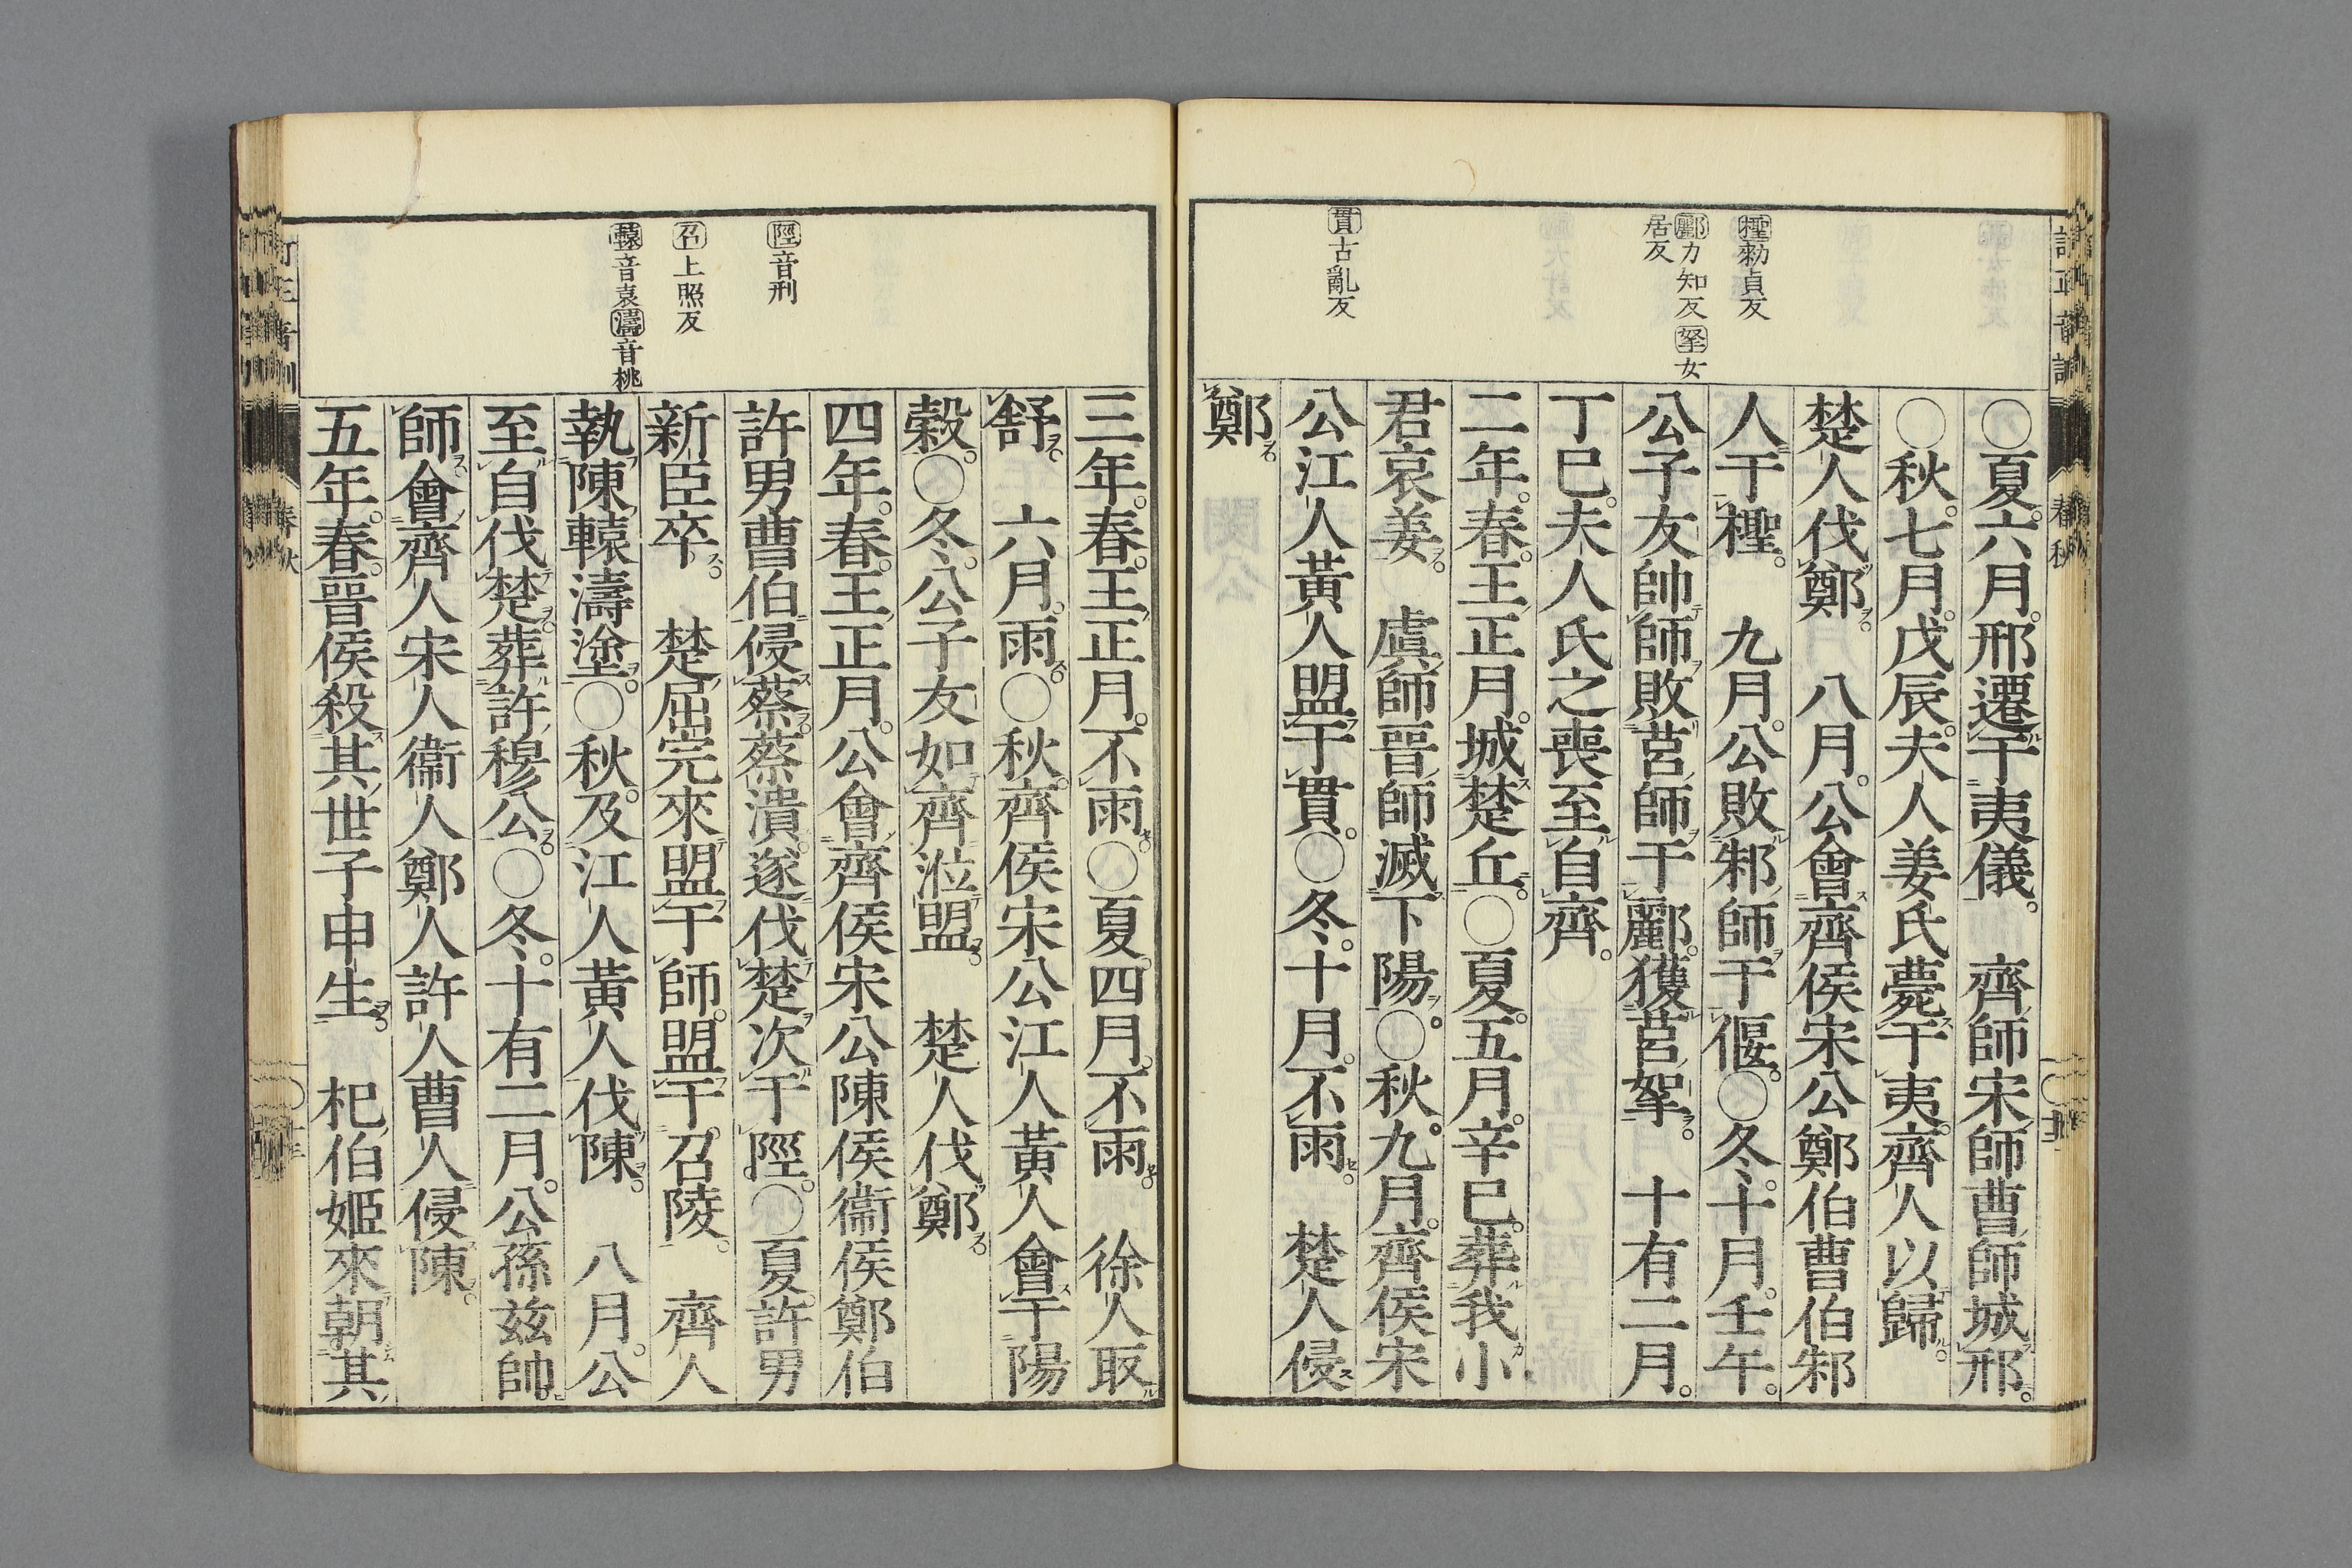 檉勑貞反
酈力知反挐女
居反
貫古亂反
○夏。六月。邢遷于夷儀。　齊師宋師曹師城邢。
○秋。七月。戊辰。夫人姜氏薨于夷。齊人以歸。
楚人伐鄭。　八月。公會齊侯宋公鄭伯曹伯邾
人于檉。　九月。公敗邾師于偃。○冬。十月。壬午。
公子友帥師敗莒師于酈。獲莒挐。　十有二月。
丁巳。夫人氏之喪至自齊。
二年。春。王正月。城楚丘。○夏。五月。辛巳。葬我小
君哀姜。　虞師晉師滅下陽。○秋。九月。齊侯宋
公江人黃人盟于貫。○冬。十月。不雨。　楚人侵
鄭。
陘音刑
召上照反
轅音袁濤音桃
三年。春。王正月。不雨。○夏。四月。不雨。　徐人取
舒。　六月。雨。○秋。齊侯宋公江人黃人會于陽
穀。○冬。公子友如齊涖盟。　楚人伐鄭。
四年。春。王正月。公會齊侯宋公陳侯衞侯鄭伯
許男曹伯侵蔡。蔡潰。遂伐楚。次于陘。○夏。許男
新臣卒。　楚屈完來盟于師。盟于召陵。　齊人
執陳轅濤塗。○秋。及江人黃人伐陳。　八月。公
至自伐楚。葬許穆公。○冬。十有二月。公孫茲帥
師。會齊人宋人衞人鄭人許人曹人侵陳。
五年。春。晉侯殺其世子申生。　杞伯姬來朝其
春秋